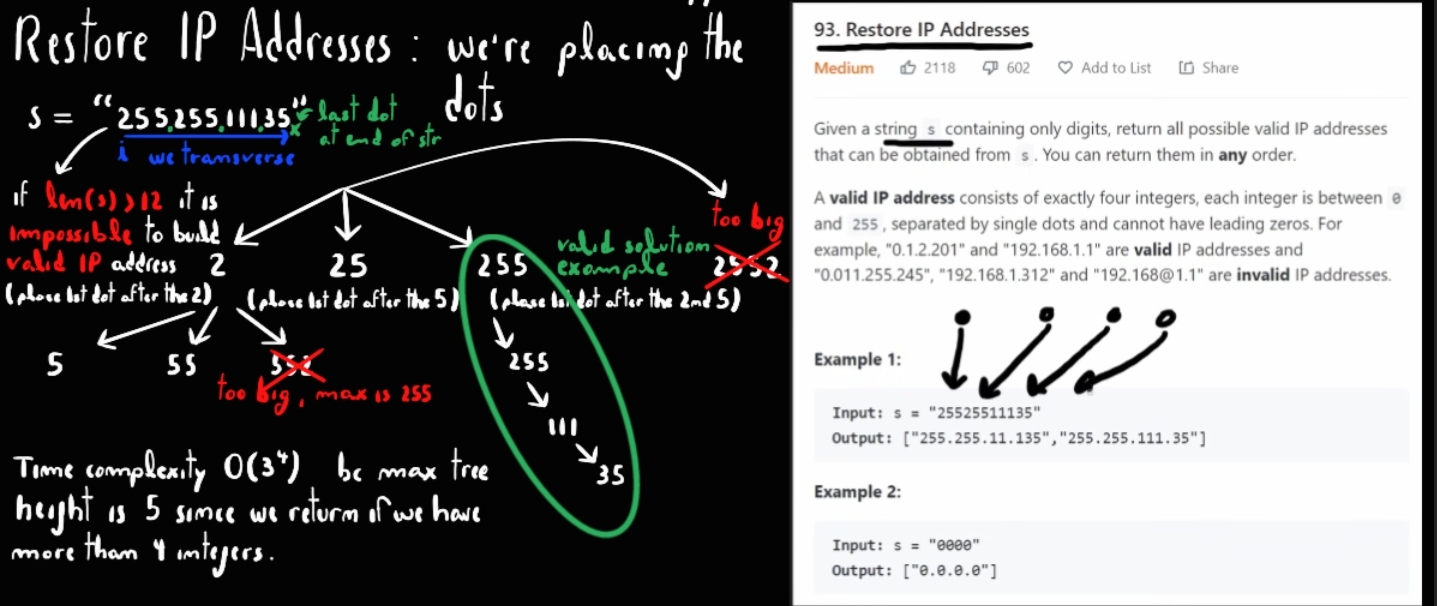 Restore IP Addresses : we're placing the dots
s = "255.255.111.35"
last dot
at end of str
i we transverse
if len(s)>12 it is
impossible to build
valid IP address
2
(place 1st dot after the 2)
25
(place 1st dot after the 5)
255
(place 1st dot after the 2nd 5)
valid solution
example
too big
2552
5
55
552
too big, max is 255
255
111
35
Time complexity O(3⁴) bc max tree
height is 5 since we return if we have
more than 4 integers.
93. Restore IP Addresses
Medium 2118 602 Add to List Share
Given a string s containing only digits, return all possible valid IP addresses
that can be obtained from s. You can return them in any order.
A valid IP address consists of exactly four integers, each integer is between 0
and 255, separated by single dots and cannot have leading zeros. For
example, "0.1.2.201" and "192.168.1.1" are valid IP addresses and
"0.011.255.245", "192.168.1.312" and "192.168@1.1" are invalid IP addresses.
Example 1:
Input: s = "25525511135"
Output: ["255.255.11.135","255.255.111.35"]
Example 2:
Input: s = "0000"
Output: ["0.0.0.0"]